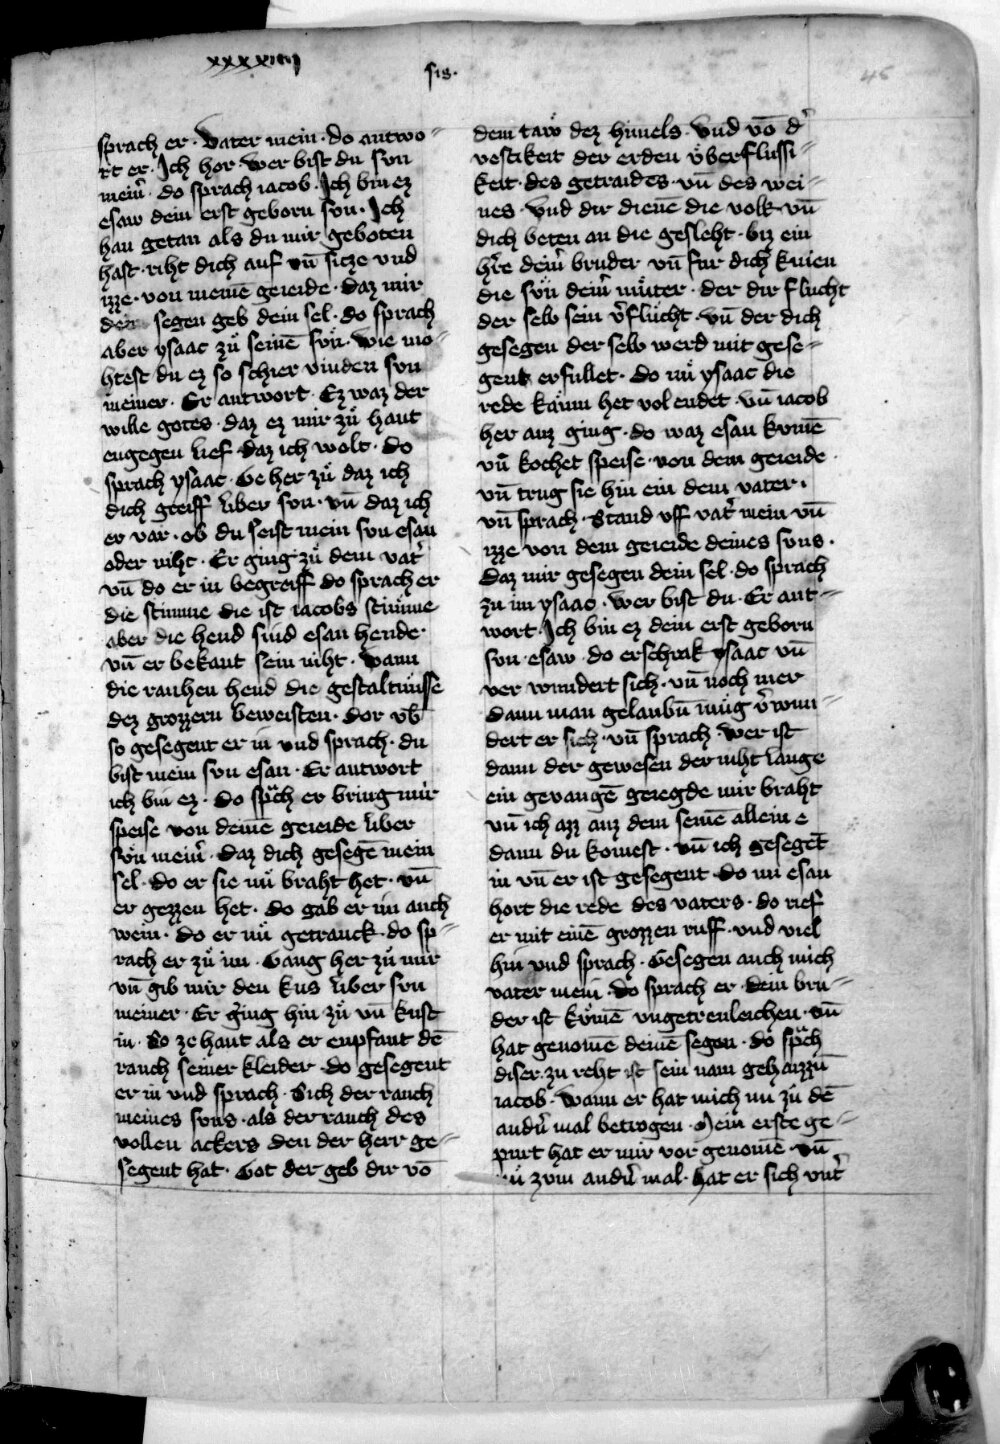 xxxxiiij
sis.
46
sprach er · Vater mein · do antwo⸗
rt er · Ich hor · wer bist du sun
mein̾ · do sprach iacob · Ich bin ez
esaw dein erst geborn sun · Ich
han getan als du mir geboten
hast · riht dich auf vn̄ sitze vnd
izze · von meinē geieide · daz mir
den segen geb dein sel · do sprach
aber ysaac zů seinē sůn · wie mo⸗
htest du ez so schier vinden sun
meiner · Er antwort · Ez waz der
wille gotes · daz ez mir zů hant
engegen lief daz ich wolt · do
sprach ysaac · Ge her zů daz ich
dich greiff liber sun · vn̄ daz ich
er var · ob du seist mein sun esau
oder niht · Er ging zů dem vat̾
vn̄ do er in begreiff do sprach er
die stimme die ist iacobs stimme
aber die hend sind esau hende ·
vn̄ er bekant sein niht · wann
die rauhen hend die gestaltnüsse
dez grozzern beweisten · dor vb̄
so gesegent er in vnd sprach · du
bist mein sun esau · Er antwort
ich bin ez · do spͣch er bring mir
speise von deinē geieide liber
sůn mein̾ · daz dich gesegē mein
sel · do er sie nů braht het · vn̄
er gezzen het · do gab er im auch
wein · do er nů getranck · do sp⸗
rach er zů im · Gang her zů mir
vn̄ gib mir den kus liber sun
meiner · Er ging hin zů vn̄ kust
in · So zehant als er enpfant dē
rauch seiner kleider · do gesegent
er in vnd sprach · Sich der rauch
meines suns · als der rauch des
vollen ackers den der herr ge⸗
segent hat · Got der geb dir vō
dem taw dez himels · vnd vō d̾
vestikeit der erden v̈berflussi⸗
keit · des getraides · vn̄ des wei⸗
nes · vnd dir dienē die volk · vn̄
dich beten an die gesleht · biz ein
h̾re dein̾ bruder vn̄ fur dich knien
die sůn dein̾ můter · der dir flucht
der selb sein v̾flucht · vn̄ der dich
gesegen der selb werd mit gese⸗
gent erfullet · do nů ysaac die
rede kaum het vol endet · vn̄ iacob
her auz ging · do waz esau kumē
vn̄ kochet speise · von dem geieide ·
vn̄ trug sie hin ein dem vater ·
vn̄ sprach · Stand vff vat̾ mein vn̄
izze von dem geieide deines suns ·
daz mir gesegen dein sel · do sprach
zu im ysaac · wer bist du · Er ant⸗
wort · Ich bin ez dein erst geborn
sun · esaw · do erschrak ysaac vn̄
ver wundert sich · vn̄ noch mer
dann man gelaubn müg v̾wun⸗
dert er sich · vn̄ sprach · wer ist
dann der gewesen der niht lange
ein gevangē geiegde mir braht
vn̄ ich azz auz dem seinē allein e
dann du komest · vn̄ ich gesegēt
in vn̄ er ist gesegent · do nu esau
hort die rede des vaters · do rief
er mit einē grozzen ruff · vnd viel
hin vnd sprach · Gesegen auch mich
vater mein · do sprach er · dein bru⸗
der ist kumē vngetreuleichen · vn̄
hat genomē deinē segen · do spͣch
diser · zu reht ist sein nam gehaizzn̄
iacob · wann er hat mich nu zu dē
andn̾ mal betrogen · Mein erste ge⸗
purt hat er mir vor genomē · vn̄
nů zum andn̾ mal · hat er sich vnt̾